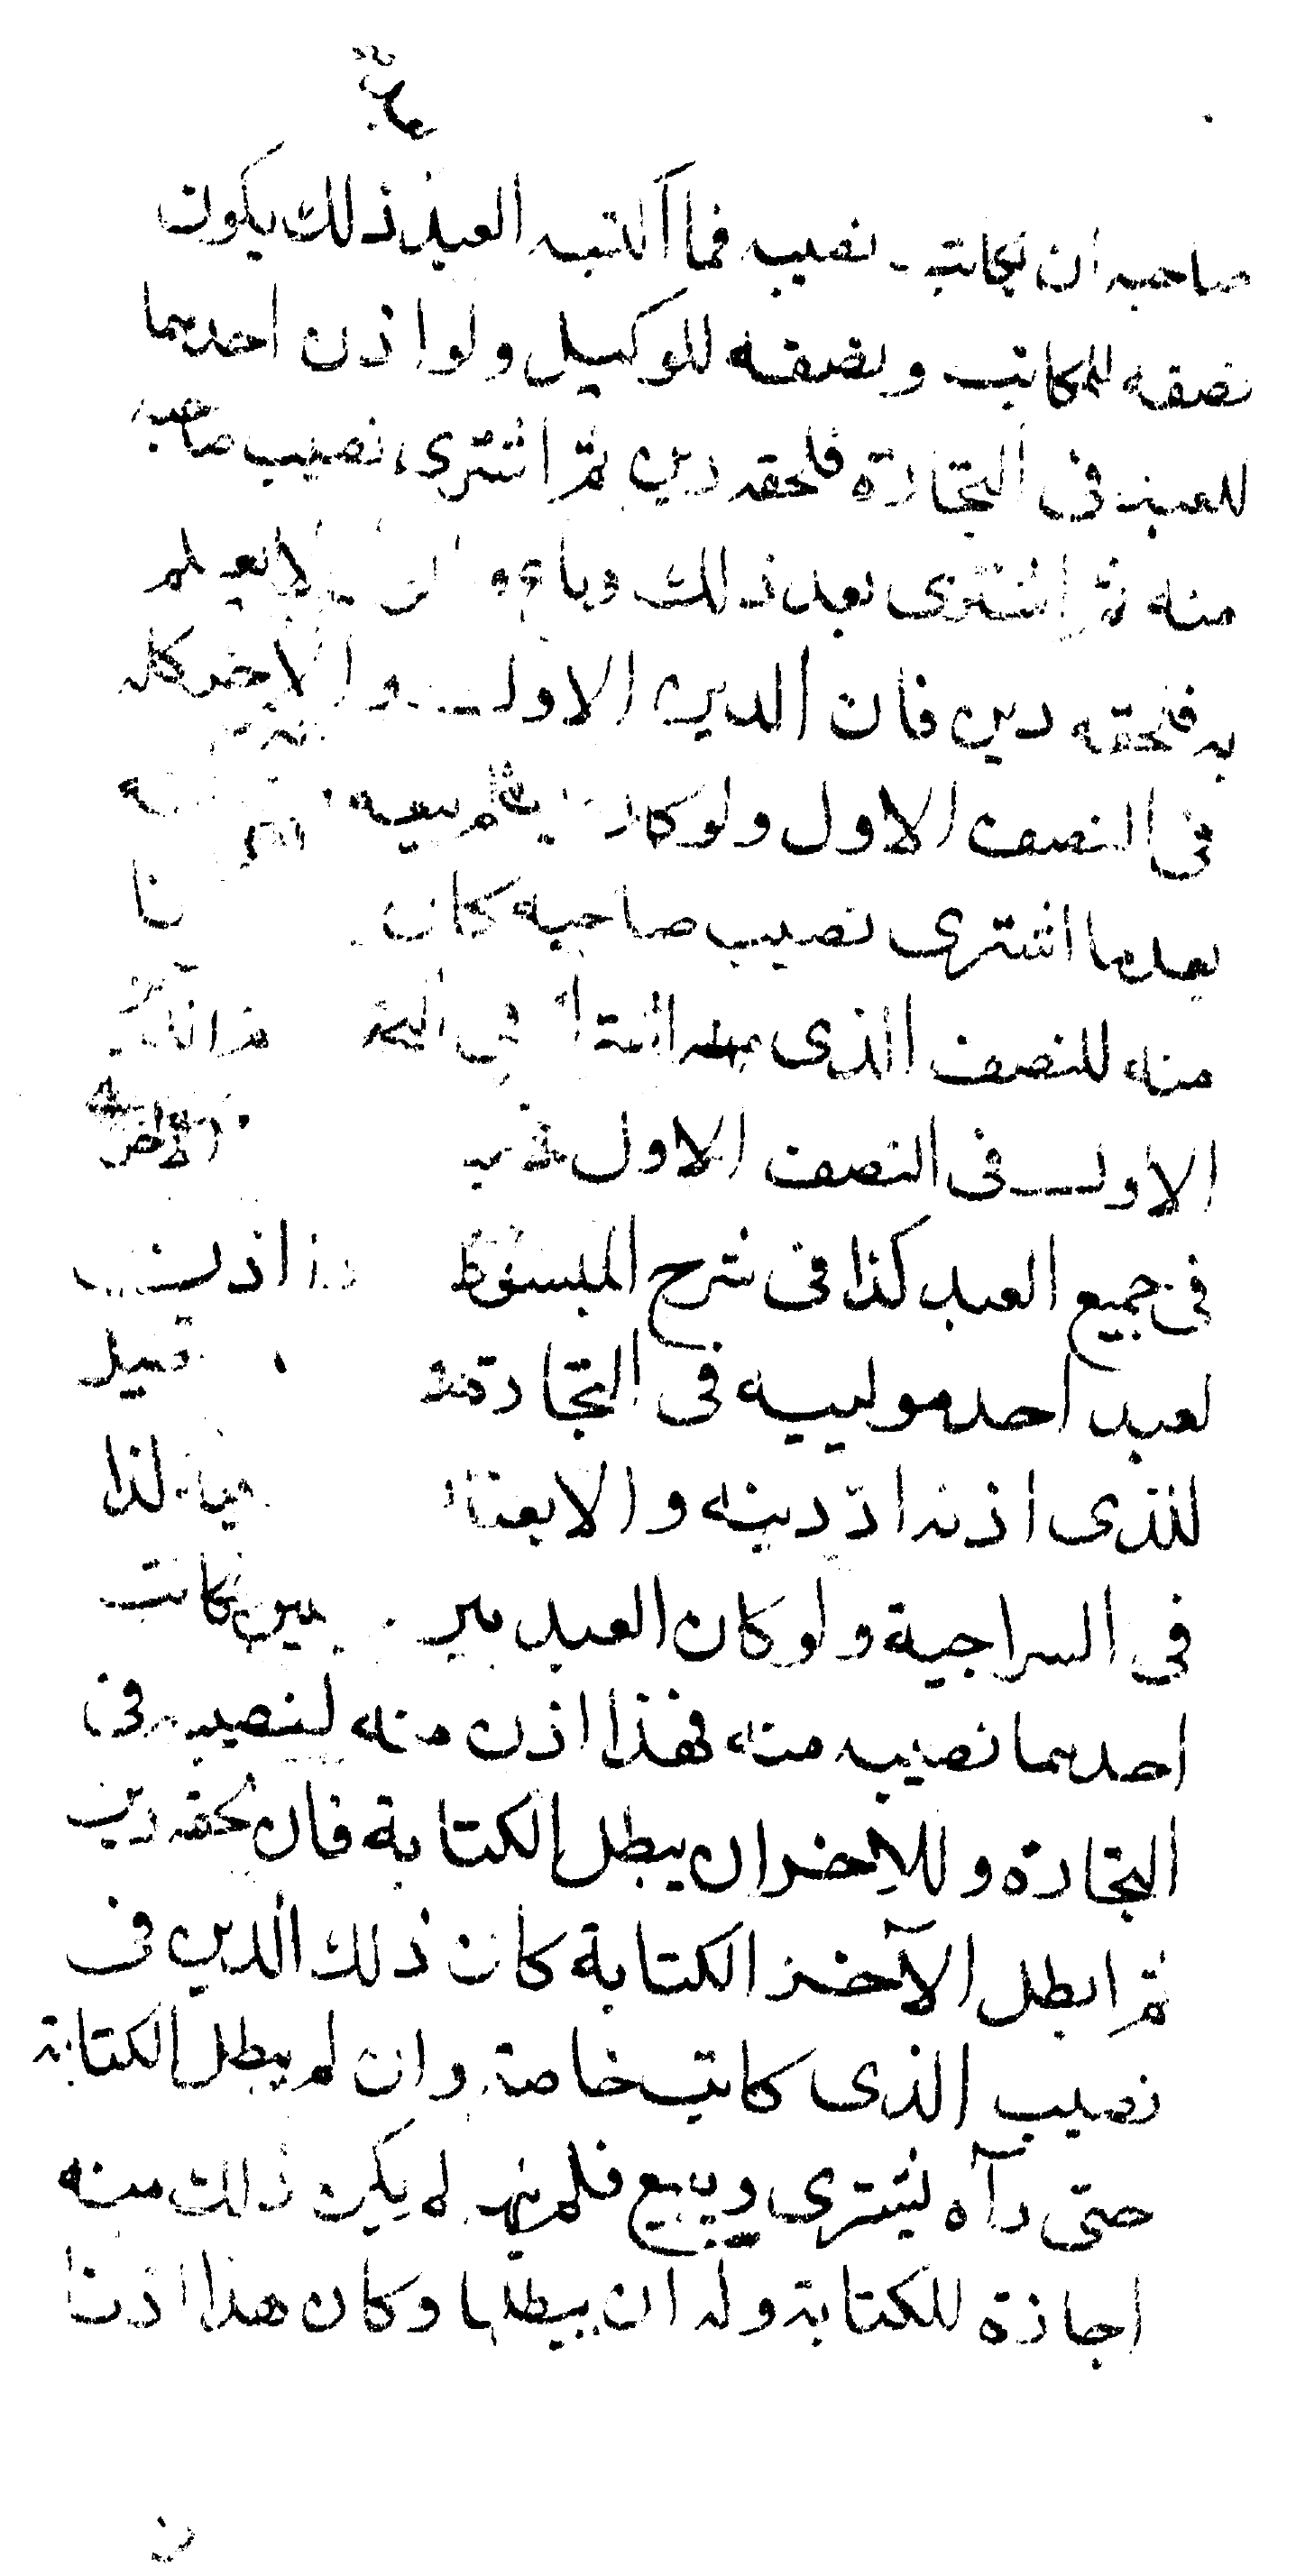 صاحبه ان يكاتب نصيبه فما اكتسبه العبد ذلك يكون
نصفه للمكاتب ونصفه للوكيل ولو اذن احدهما
للعبد فى التجارة فلحقه دين ثم اشترى نصيب صاحبه
منه ثم اشترى بعد ذلك وباع و لا يعلم
به فلحقه دين فان الدين الاول والاخر كله
فى النصف الاول ولو كان يعلم ببيعه
بعد ما اشترى نصيب صاحبه كان
منه للنصف الذى اشترا فى
الاول فى النصف الاول
فى جميع العبد كذا فى شرح المبسوط اذن
لعبد احد موليـيه فى التجارة قيل
للذى اذن اد دينه والا بعنا كذا
فى السراجية ولو كان العبد بين كاتب
احدهما نصيبه منه فهذا اذن منه لنصيبه فى
التجارة وللاخر ان يبطل الكتابة فان لحقه دين
ثم ابطل الآخر الكتابة كان ذلك الدين فى
نصيب الذى كاتب خاصة وان لم يبطل الكتابة
حتى رآه يشترى ويبيع فلم ينهه لم يكن ذلك منه
اجازة للكتابة وله ان يبطلها وكان هذا اذنا